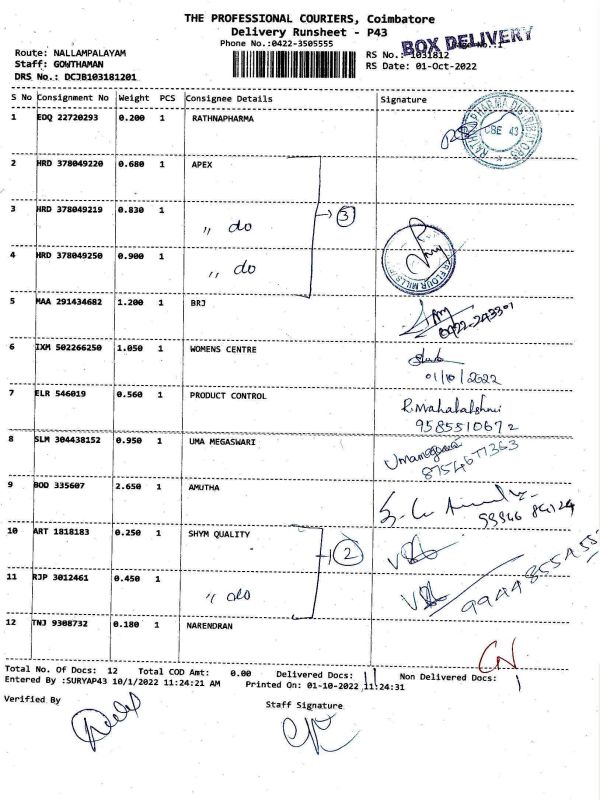 THE PROFESSIONAL COURIERS, Coimbatore
Delivery Runsheet - P43
Phone No.:0422-3505555
BOX DELIVERY
Route: NALLAMPALAYAM
RS No.: 1031812
Staff: GOWTHAMAN
RS Date: 01-Oct-2022
DRS No.: DCJB103181201
S No Consignment No Weight PCS Consignee Details Signature
1 EDQ 22720293 0.200 1 RATHNAPHARMA
RATHNAPHARMA DISTRIBUTORS CBE 43
2 HRD 378049220 0.680 1 APEX
3 HRD 378049219 0.830 1 " do
3
4 HRD 378049250 0.900 1 " do
FLOUR MILLS
5 MAA 291434682 1.200 1 BRJ
6 IXM 502266250 1.050 1 WOMENS CENTRE
01/10/2022
7 ELR 546019 0.560 1 PRODUCT CONTROL R.Mahalakshmi
9585510672
8 SLM 304438152 0.950 1 UMA MEGASWARI
9 BOD 335607 2.650 1 AMUTHA
10 ART 1818183 0.250 1 SHYM QUALITY
2
11 RJP 3012461 0.450 1 " do
12 TNJ 9308732 0.180 1 NARENDRAN
CN
Total No. Of Docs: 12 Total COD Amt: 0.00 Delivered Docs: 11 Non Delivered Docs: 1
Entered By :SURYAP43 10/1/2022 11:24:21 AM Printed On: 01-10-2022 11:24:31
Verified By
Staff Signature